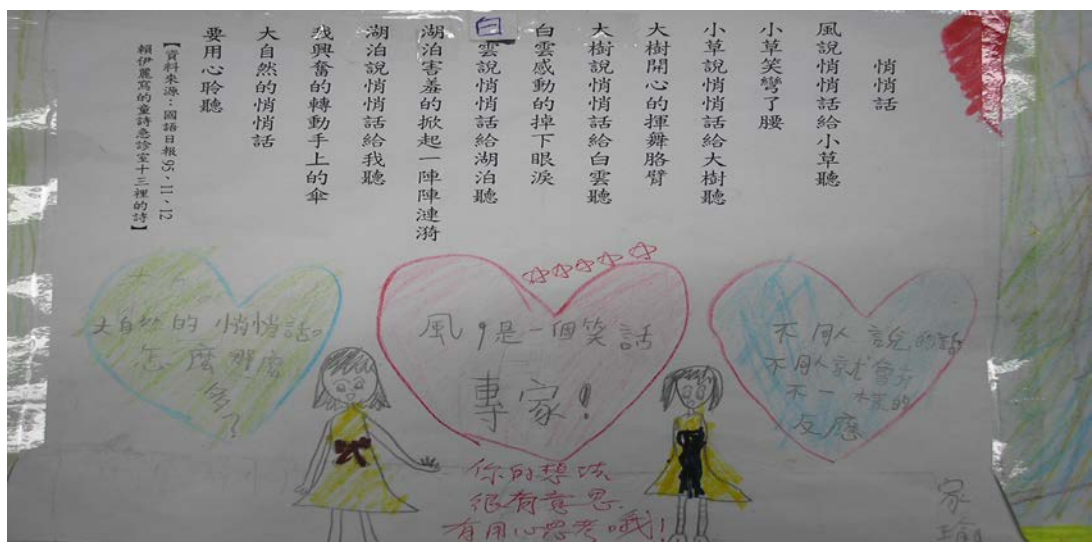 悄悄話
風說悄悄話給小草聽
小草笑彎了腰
小草說悄悄話給大樹聽
大樹開心的揮舞胳臂
大樹說悄悄話給白雲聽
白雲感動的掉下眼淚
白雲說悄悄話給湖泊聽
湖泊害羞的掀起一陣陣漣漪
湖泊說悄悄話給我聽
我興奮的轉動手上的傘
大自然的悄悄話
要用心聆聽
【資料來源：國語日報 95、11、12
賴伊麗寫的童詩急診室十三裡的詩】
不同人說的話
不同人就會有
不一樣的
反應
風，是一個笑話
專家！
大自然的悄悄話。
怎麼那麼
多？
你的想法
很有意思.
有用心思考哦！
家
瑜